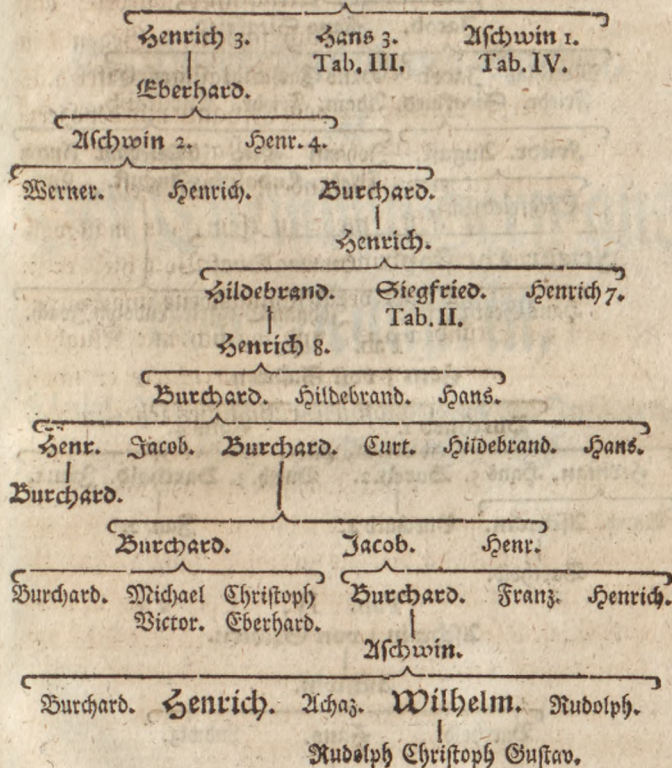 Henrich 3. Hans 3. Aschwin 1.
Tab. III. Tab. IV.
Eberhard.
Aschwin 2. Henr. 4.
Werner. Henrich. Burchard.
Henrich.
Hildebrand. Siegfried. Henrich 7.
Tab. II.
Henrich 8.
Burchard. Hildebrand. Hans.
Henr. Jacob. Burchard. Curt. Hildebrand. Hans.
Burchard.
Burchard. Jacob. Henr.
Burchard. Michael Christoph Burchard. Franz. Henrich.
Victor. Eberhard.
Aschwin.
Burchard. Henrich. Achaz. Wilhelm. Rudolph.
Rudolph Christoph Gustav.